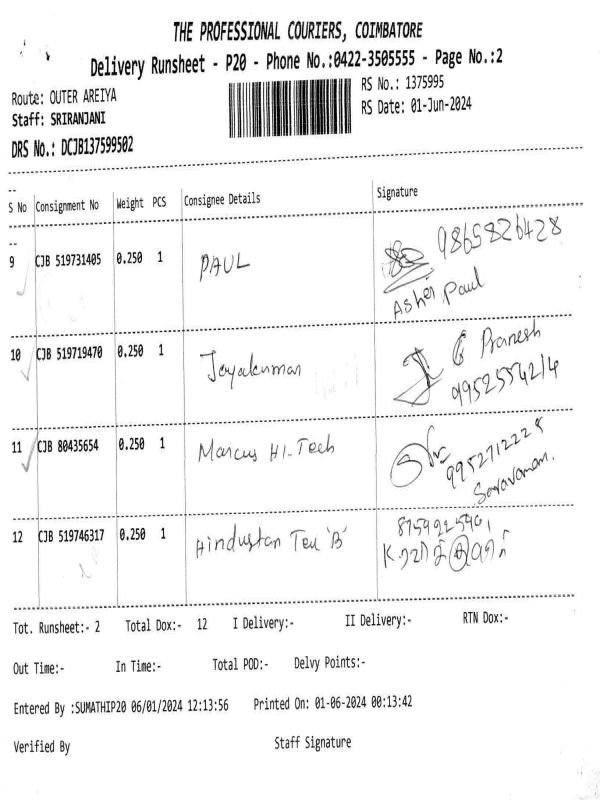 THE PROFESSIONAL COURIERS, COIMBATORE
Delivery Runsheet - P20 - Phone No.:0422-3505555 - Page No.:2
Route: OUTER AREIYA
RS No.: 1375995
Staff: SRIRANJANI
RS Date: 01-Jun-2024
DRS No.: DCJB137599502
--
S No Consignment No Weight PCS Consignee Details Signature
--
9 CJB 519731405 0.250 1 PAUL 9865826428
Asher Paul
10 CJB 519719470 0.250 1 Jeyakumar G Pranesh
9952554214
11 CJB 80435654 0.250 1 Marcus Hi-Tech 9952712228
Saravanan.
12 CJB 519746317 0.250 1 Hindustan Tex 'B' 8759225901
Tot. Runsheet:- 2 Total Dox:- 12 I Delivery:- II Delivery:- RTN Dox:-
Out Time:- In Time:- Total POD:- Delvy Points:-
Entered By :SUMATHIP20 06/01/2024 12:13:56 Printed On: 01-06-2024 00:13:42
Verified By Staff Signature